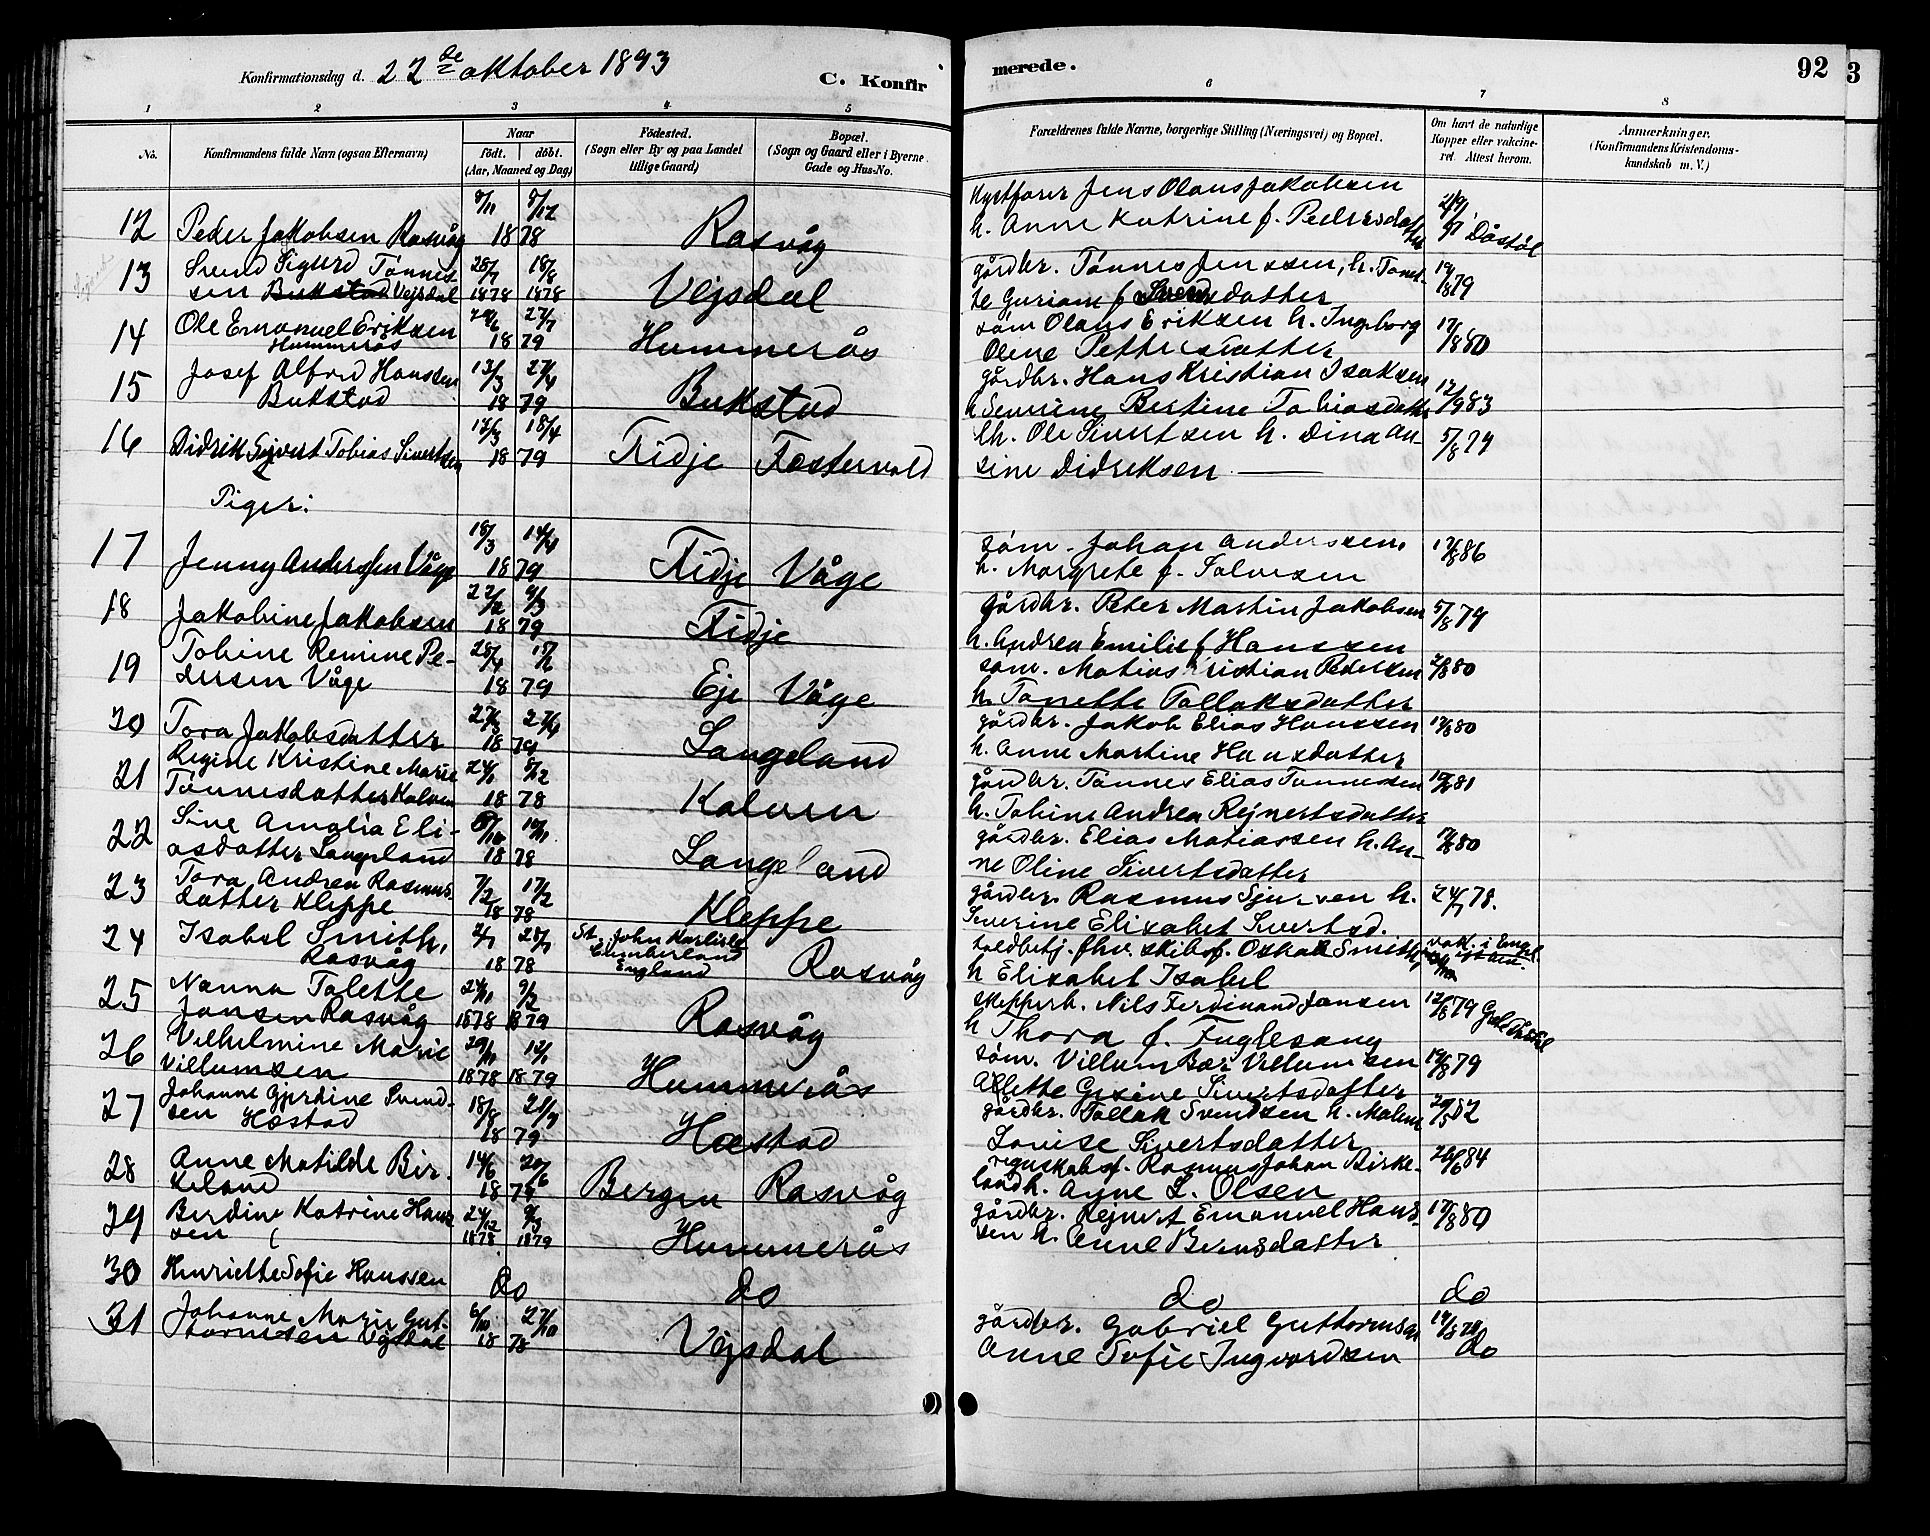 Konfirmationsdag d. 22de oktober 1893
C. Konfirmerede.
92
3
1 2 3 4 5 6 7 8
No.
Konfirmandens fulde Navn (ogsaa Efternavn)
Naar
födt. döbt.
(Aar, Maaned og Dag)
Födested.
(Sogn eller By og paa Landet
tillige Gaard)
Bopæl.
(Sogn og Gaard eller i Byerne
Gade og Hus-No.
Forældrenes fulde Navne, borgerlige Stilling (Næringsvei) og Bopæl.
Om havt de naturlige
Kopper eller vakcine-
ret. Attest herom.
Anmærkninger.
(Konfirmandens Kristendoms-
kundskab m. V.)
12 Peder Jakobsen Rasvåg 8/11 8/12 1878 Rasvåg
Kystfarer Jens Olaus Jakobsen
h. Anne Katrine f. Pedersdatter
13 Svend Sigurd Tønnes-
sen Bukstad Vejsdal 28/7 18/8 1878 1878 Vejsdal
gårdbr. Tønnes Jenssen, h. Tonet-
te Guriane f Svendsdatter 19/8 79
14 Ole Emanuel Eriksen
Hummerås 29/6 27/7 1879 Hummerås
søm Olaus Eriksen h. Ingeborg
Oline Pettersdatter 17/8 80
15 Josef Alfred Hanssen
Bukstad 13/3 27/4 1879 Bukstad
gårdbr. Hans Kristian Isaksen
h Severine Bertine Tobiasdatter 12/9 83
16 Didrik Sejvert Tobias Sivertsen 12/3 18/4 1879 Fidje Fæstervold
Ole Sivertsen h. Dina An-
sine Didriksen 5/8 79
Piger:
17 Jenny Andersen Våge 18/3 14/4 1879 Fidje Våge
søm. Johan Anderssen
h. Margrete f. Salvesen 17/8 86
18 Jakobine Jakobsen 22/2 9/3 1879 Fidje
gårdbr. Peter Martin Jakobsen
h. Andrea Emilie f Hanssen 5/8 79
19 Tobine Remine Pe-
dersen Våge 28/4 1879 Eje Våge
søm. Matias Kristian Pedersen
h. Tonette Tollaksdatter 80
20 Tora Jakobsdatter 27/4 1879 Langeland
gårdbr. Jakob Elias Hanssen
h. Anne Martine Hansdatter 17/8 80
21 Regine Kristine Marie
Tønnesdatter Kalven 8/12 1878 Kalven
gårdbr. Tønnes Elias Tønnessen
h. Tobine Andrea Rejnertsdatter 81
22 Sine Amalia Eli-
asdatter Langeland 1878 Langeland
gårdbr. Elias Matiassen h. An-
ne Oline Sivertsdatter 80
23 Tora Andrea Rasmus-
datter Kleppe 7/2 17/2 1878 Kleppe
gårdbr. Rasmus Sjursen h.
Severine Elisabet Sivertsd. 24/7 78.
24 Isabel Smith,
Rasvåg 2/7 28/7 1878 St. John Karlisle
Cumberland
England Rasvåg
toldbetj. fhv. skibsf. Oskar Smith
h Elisabet Isabel
vak. i Engl.
25 Nanna Talette
Jansen Rasvåg 24/11 9/2 1878 1879 Rasvåg
skipperh. Nils Ferdinand Jansen
h Thora f. Fuglesang 12/8 79
26 Vilhelmine Marie
Villumsen 29/11 12/1 1878 1879 Hummerås
søm. Villum Bær Villumsen
Alette Gesine Sivertsdatter 19/8 79
27 Johanne Gjerdine Svend-
sen Hæstad 18/8 21/9 1879 Hæstad
gårdbr. Tollak Svendsen h. Malene
Lovise Sivertsdatter 82
28 Anne Matilde Bir-
keland 14/6 20/6 1878 Bergen Rasvåg
regnskabsf. Rasmus Johan Birke-
land h. Anne L. Olsen 26/6 84
29 Berdine Katrine Hans-
sen 24/12 9/3 1878 1879 Hummerås
gårdbr. Rejnert Emanuel Hans-
sen h. Anne Berensdatter 17/8 80
30 Henriette Sofie Hanssen do do do do
31 Johanne Marie Gut-
tormsen Vejsdal 6/10 27/10 1878 Vejsdal
gårdbr. Gabriel Guttormsen
Anne Sofie Ingvardsen 19/8 79
do